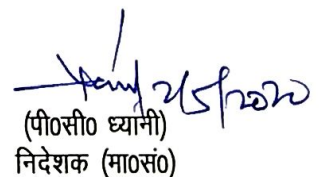 2/5/2020
(पी०सी० ध्यानी)
निदेशक (मा०सं०)